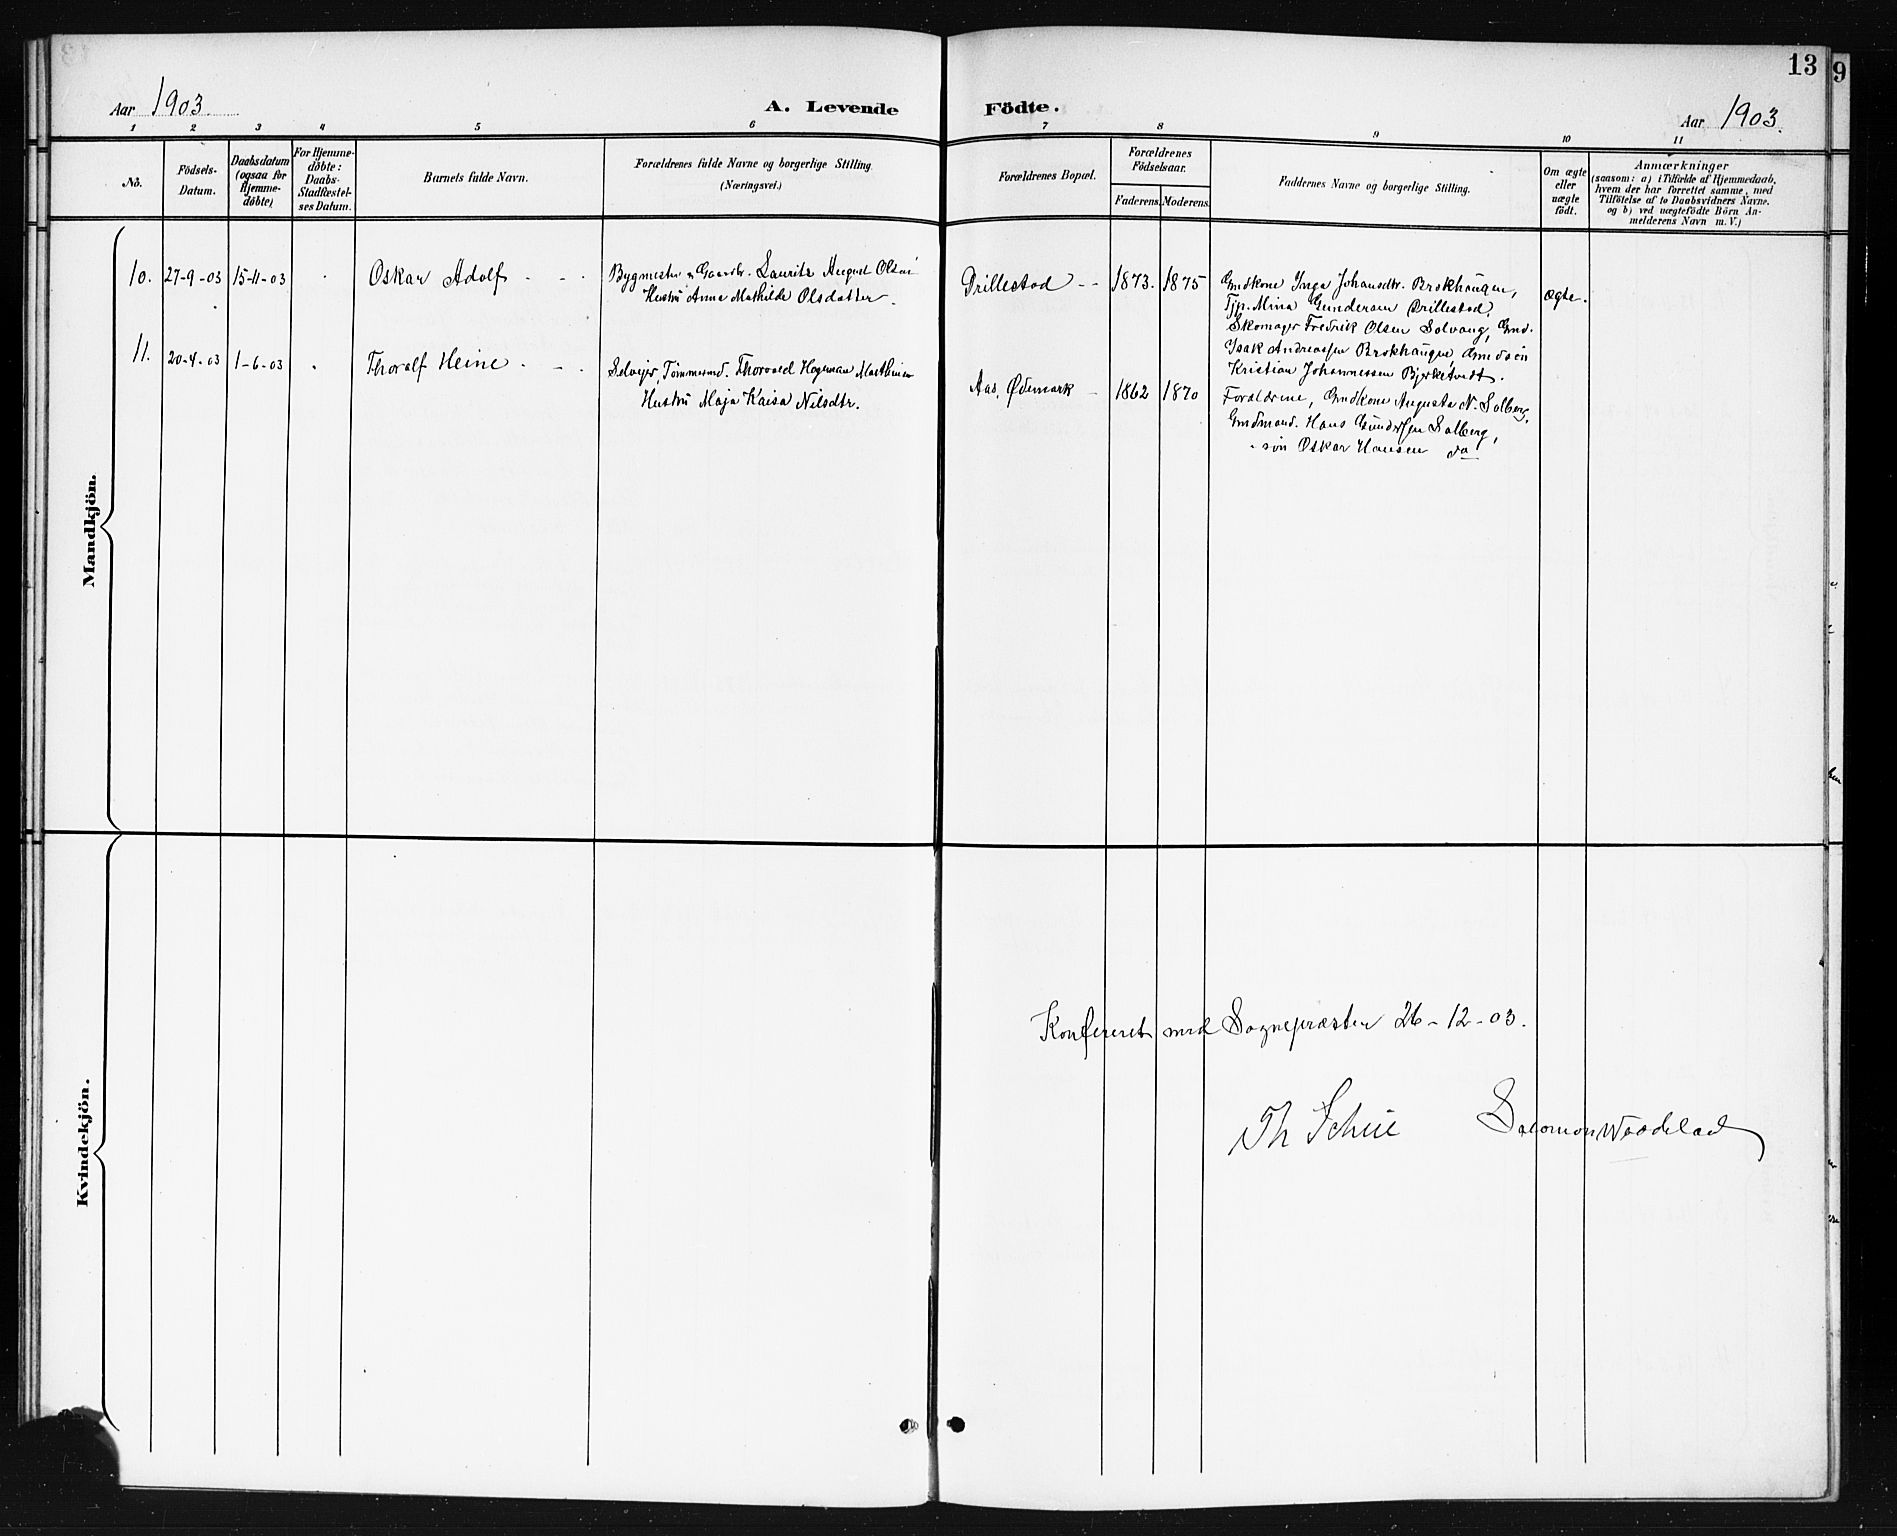 13
9
Aar 1903.
A. Levende Födte.
Aar 1903.
1 2 3 4 5 6 7 8 9 10 11
No.
Födsels-
Datum.
Daabsdatum
(ogsaa for
Hjemme-
döbte)
For Hjemme-
döbte:
Daabs-
Stadfæstel-
ses Datum.
Barnets fulde Navn.
Forældrenes fulde Navne og borgerlige Stilling.
(Næringsvei.)
Forældrenes Bopæl.
Forældrenes
Födselsaar.
Faderens. Moderens.
Faddernes Navne og borgerlige Stilling.
Om ægte
eller
uægte
födt.
Anmærkninger
(saasom: a) i Tilfælde af Hjemmedaab,
hvem der har forrettet samme, med
Tilföielse af to Daabsvidners Navne.
og b) ved uægtefödte Börn An-
melderens Navn m. V.)
Mandkjön.
10. 27-9-03 15-11-03 Oskar Adolf
Bygmester & Gaardbr. Laurits August Olsen
Hustru Anna Mathilde Olsdatter.
Drillestad 1873. 1875
Gmdkone Inga Johansdtr. Brekhaugen,
Tjp. Mina Gundersen Drillestad,
Skomager Fredrik Olsen Solvang, Gmd.
Isak Andreassen Brekhaugen Gmdsön
Kristian Johannessen Bjerketvedt.
ægte.
11. 20-4-03 1-6-03 Thoralf Heine
Selveier, Tømmermd. Thorvald Hageman Mathisen
Hustru Maja Kaisa Nilsdtr.
Aas, Ødemark 1862 1870
Forældrene, Gmdkone Augusta N. Solberg,
Gmdmand. Hans Gundersen Solberg,
- søn Oskar Hansen do
Kvindekjön.
Konfereret med Sognepræsten 26-12-03.
Th Schie Salomon Woodslad